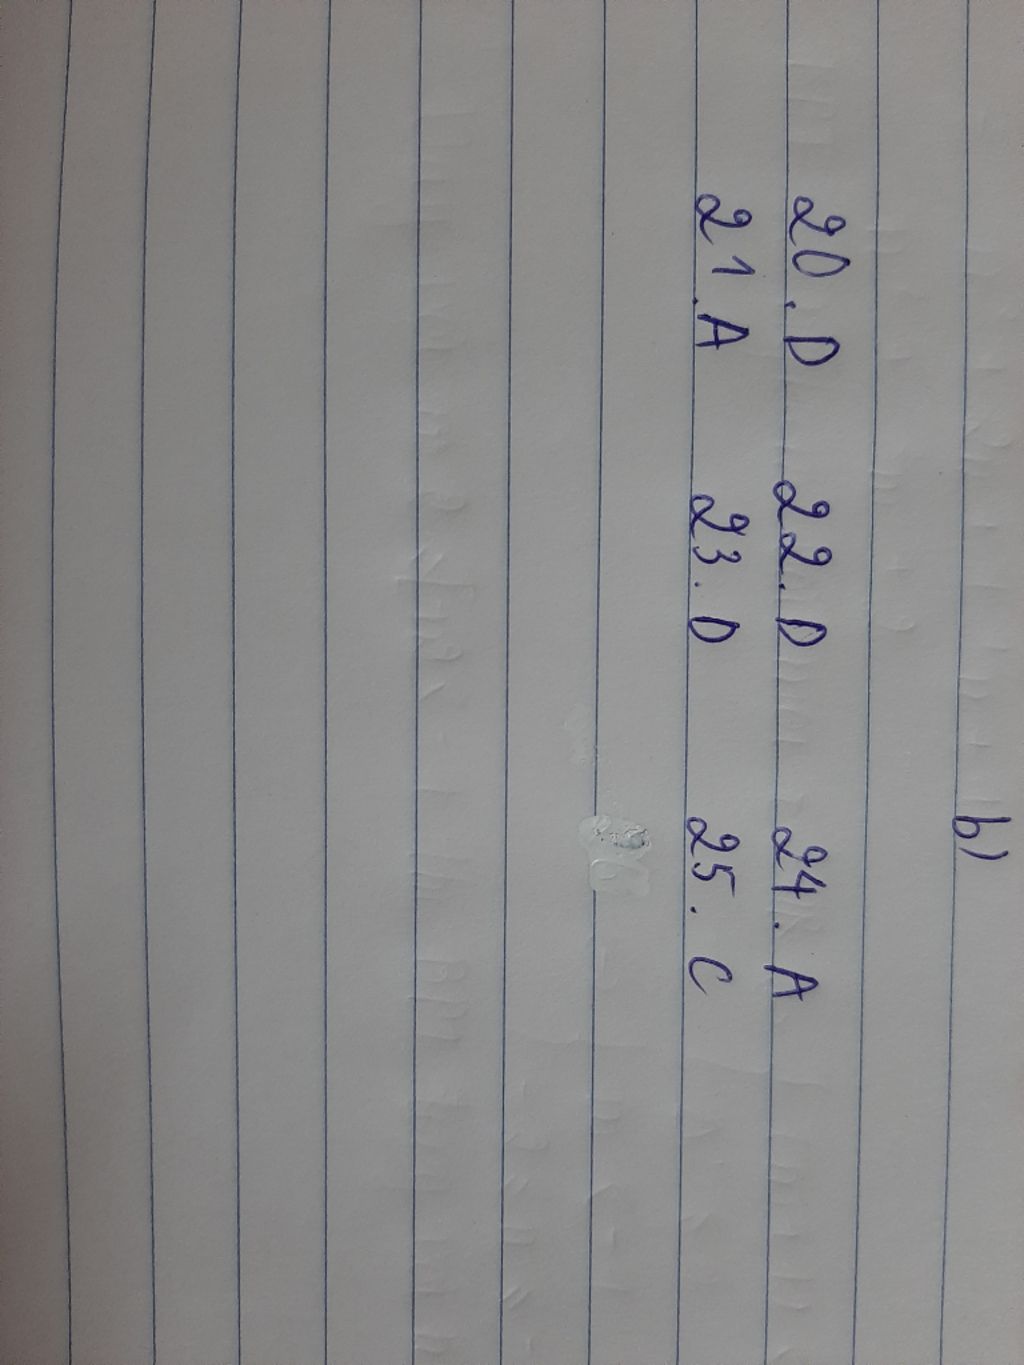 b)
20. D 22. D 24. A
21. A 23. D 25. C